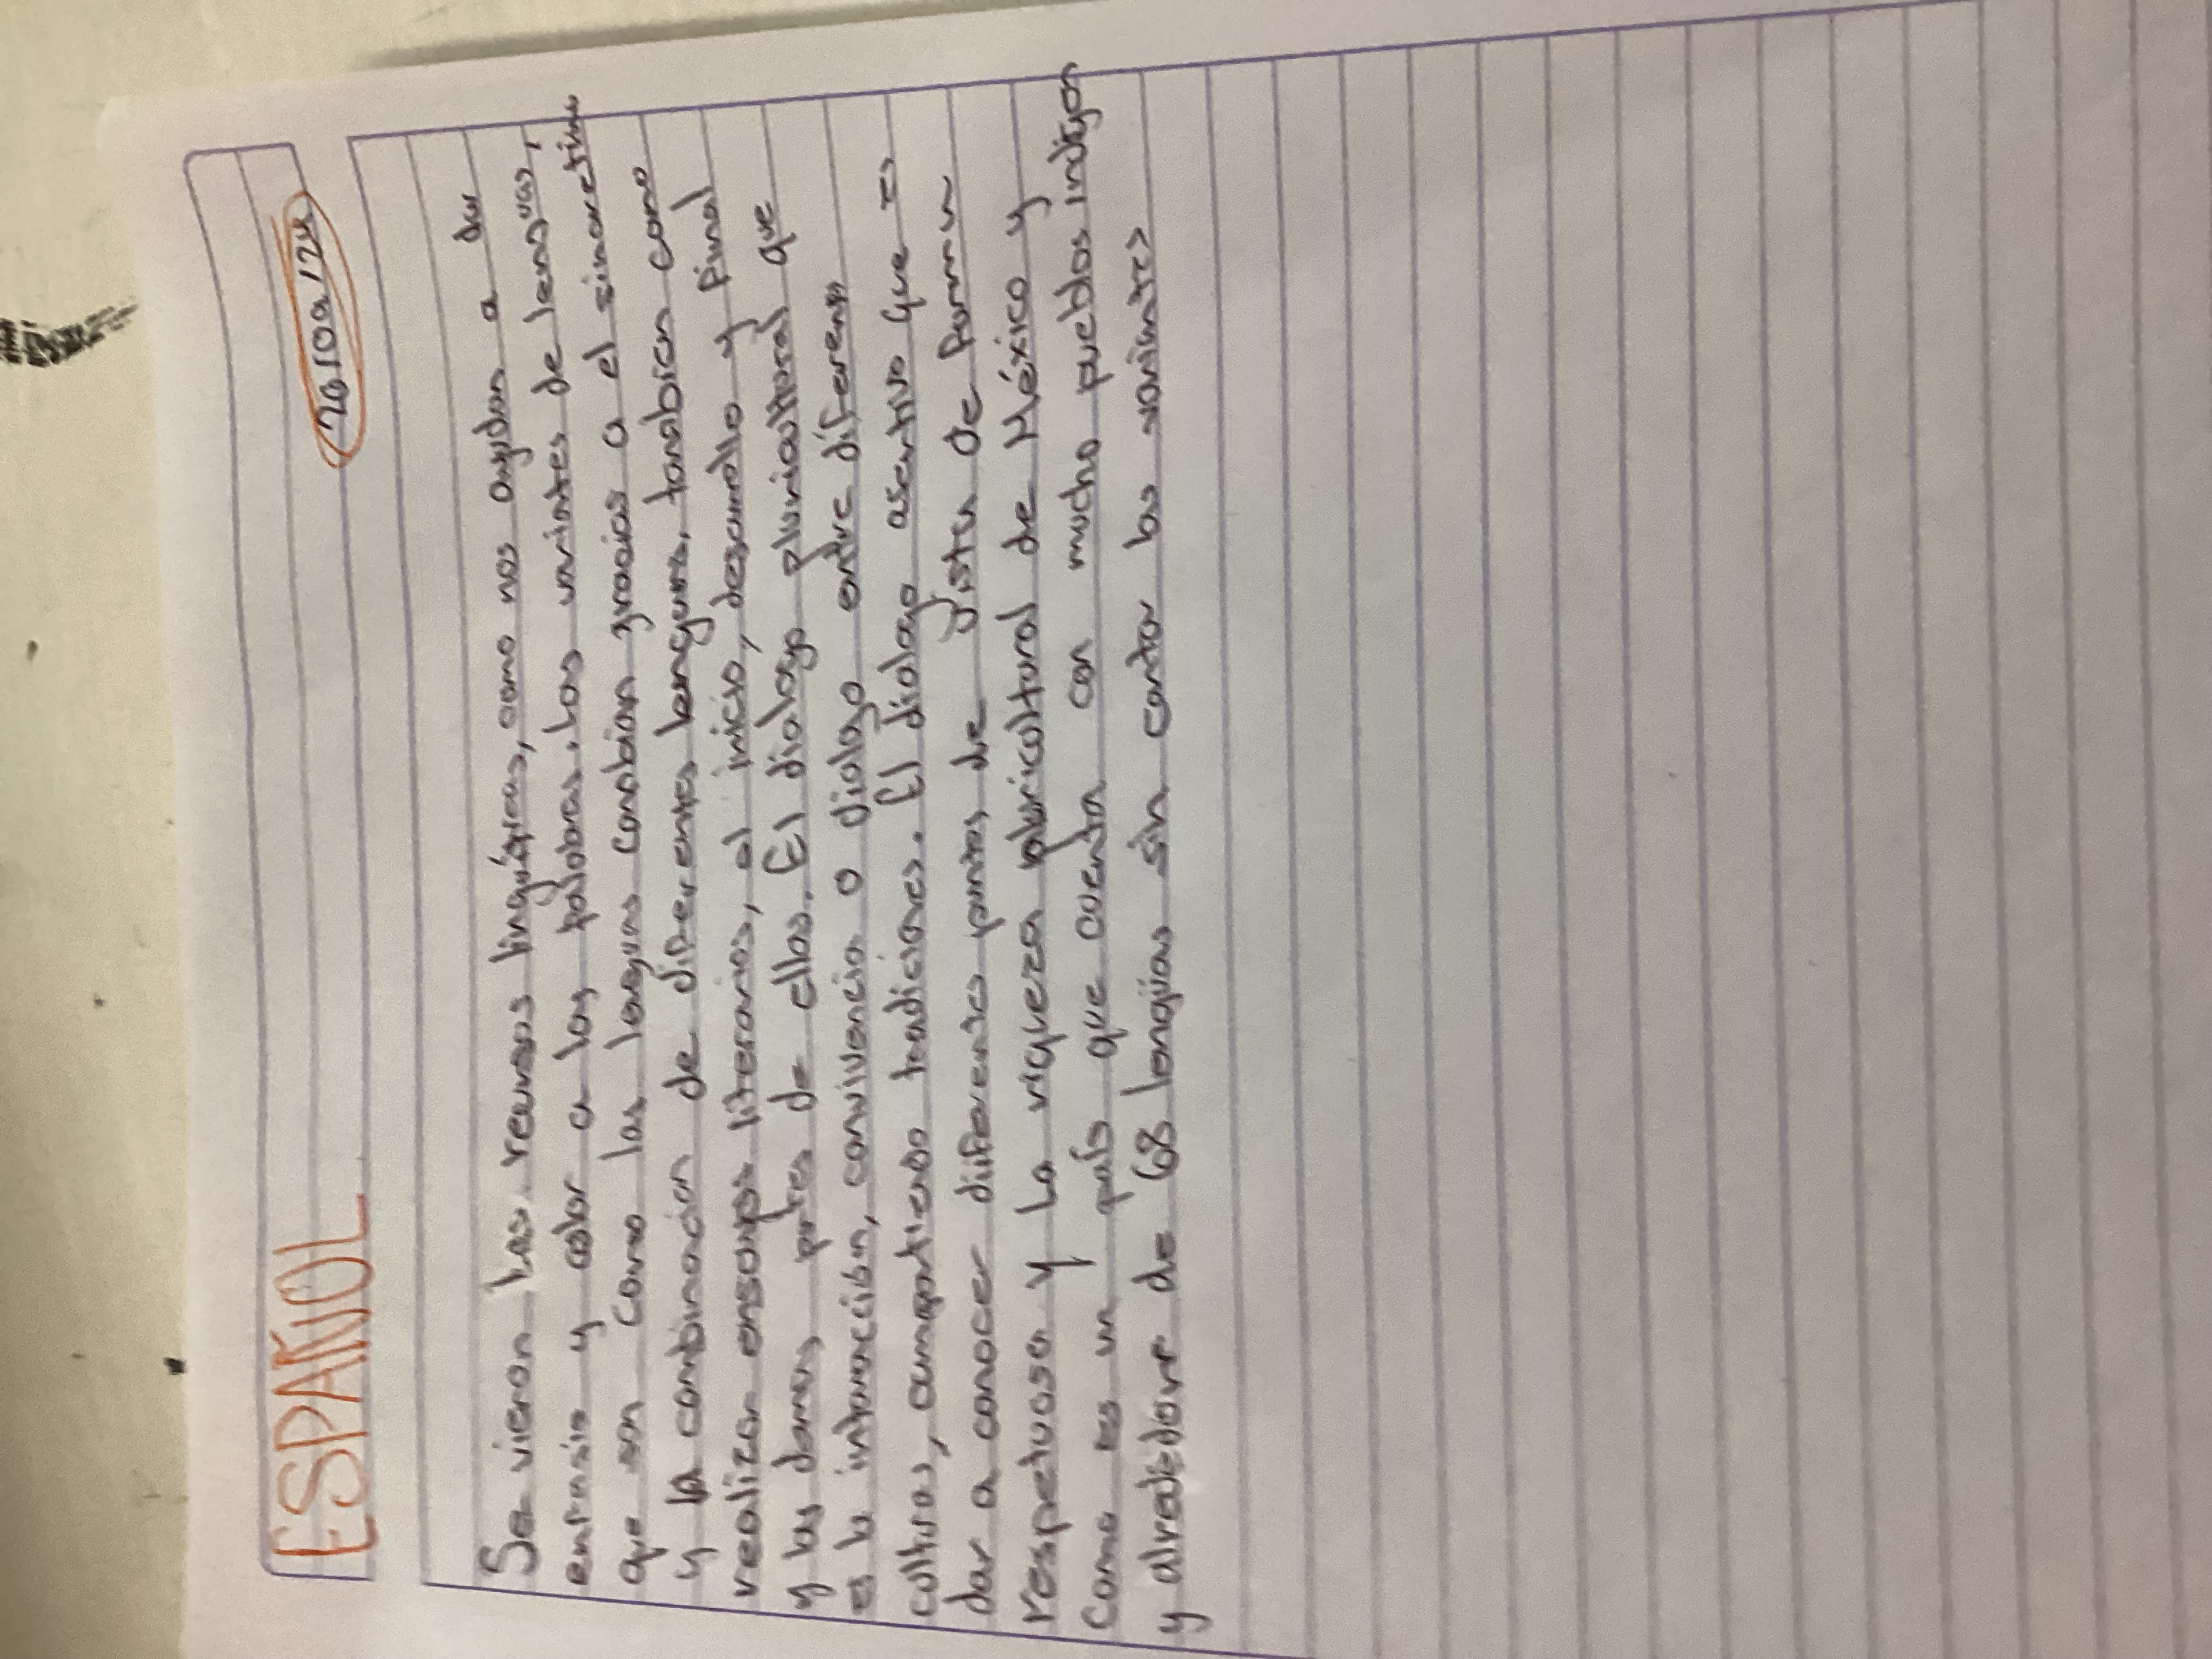 ESPAÑOL
Se vieron los recursos lingüísticos, como nos ayudan a dar
enfasis y color a las palabras. Las variantes de lenguas,
que son como las lenguas cambian gracias a el sincretismo
y la combinación de diferentes lenguas, tambien como
realizar ensayos literarios, el inicio, desarrollo y final
y las demas partes de ellos. El dialogo pluricultural que
es la interacción, convivencia o dialogo entre diferentes
culturas, compartiendo tradiciones. El dialogo asertivo que es
dar a conocer diferentes puntos de vista de forma
respetuosa y La riqueza pluricultural de México y
como es un país que cuenta con mucho pueblos indigenas
y alrededore de 68 lengüas sin contar las variantes